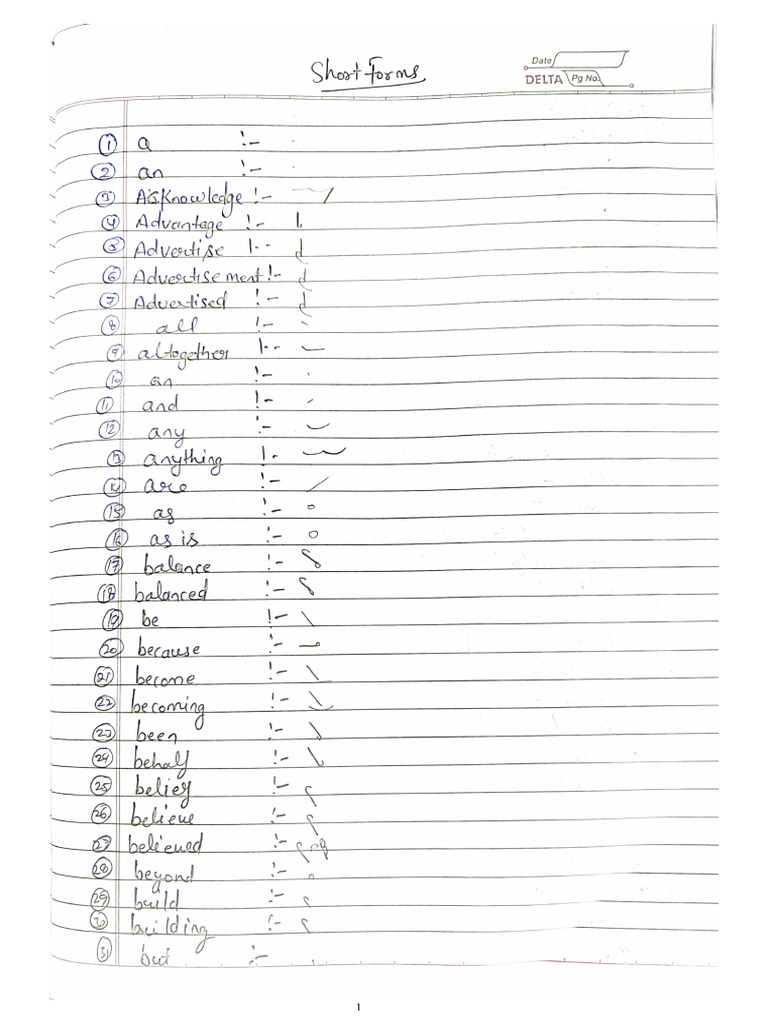 Short Forms
Date
DELTA Pg No.
1 a :-
2 an :-
3 Acknowledge :-
4 Advantage :-
5 Advertise :-
6 Advertisement :-
7 Advertised :-
8 all :-
9 altogether :-
10 an :-
11 and :-
12 any :-
13 anything :-
14 are :-
15 as :-
16 as is :-
17 balance :-
18 balanced :-
19 be :-
20 because :-
21 become :-
22 becoming :-
23 been :-
24 behalf :-
25 belief :-
26 believe :-
27 believed :-
28 beyond :-
29 build :-
30 building :-
31 but :-
1